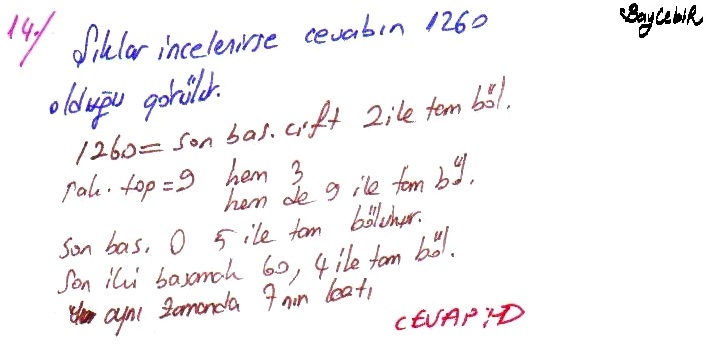 BayCebiR
14./ Şıklar incelenirse cevabın 1260
olduğu görülür.
1260= son bas. çift 2 ile tam böl.
rak. top=9 hem 3
hem de 9 ile tam böl.
son bas. 0 5 ile tam bölünür.
son iki basamak 60, 4 ile tam böl.
aynı zamanda 7 nin katı
CEVAP:D